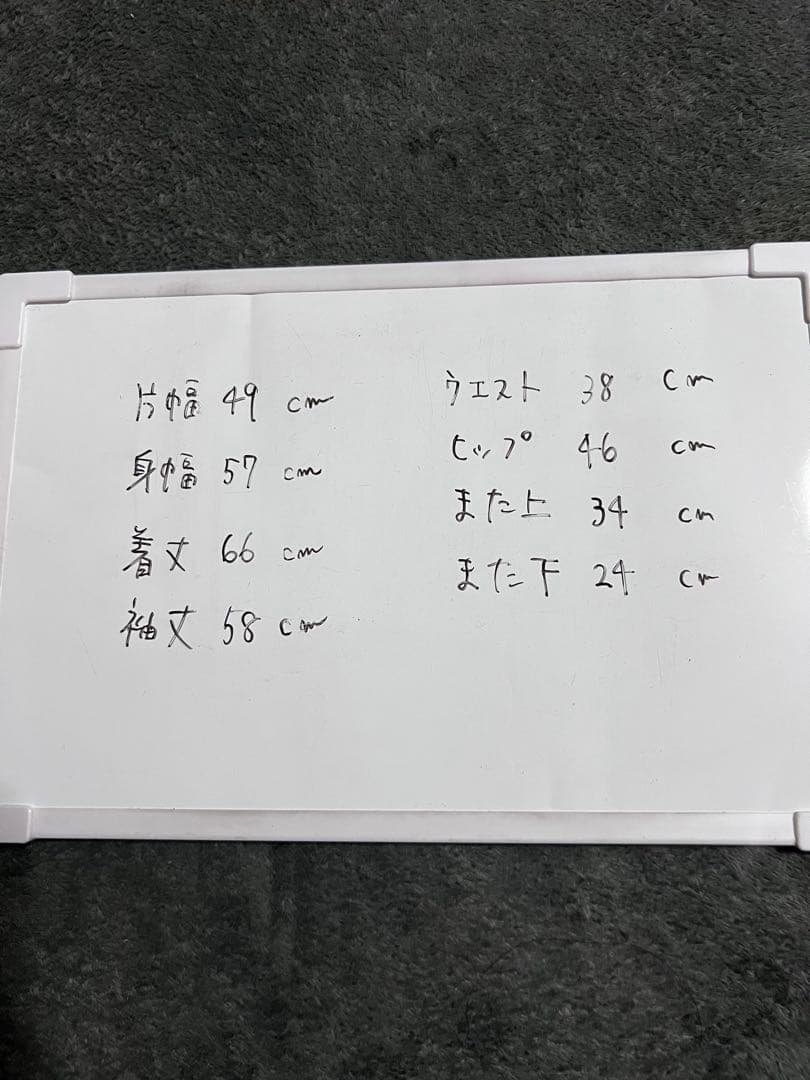 片幅 49 cm
身幅 57 cm
着丈 66 cm
袖丈 58 cm
ウエスト 38 cm
ヒップ 46 cm
また上 34 cm
また下 24 cm